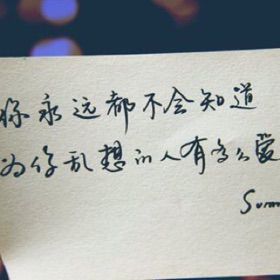 你永远都不会知道
为你乱想的人有多么爱
Summ